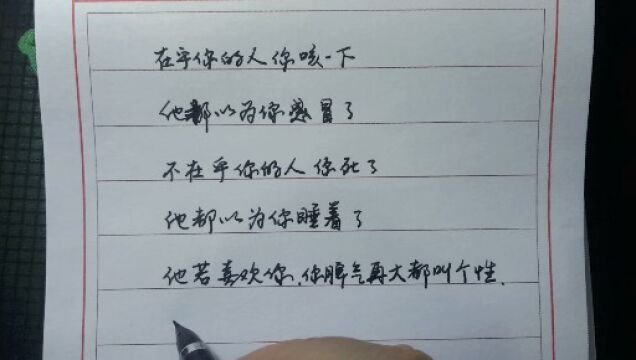 在乎你的人你咳一下
他都以为你感冒了
不在乎你的人你死了
他都以为你睡着了
他若喜欢你,你脾气再大都叫个性.